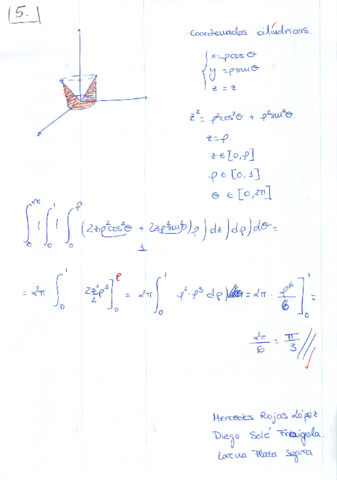 5.
Coordenadas cilíndricas.
x = ρcosθ
y = ρsinθ
z = z
z² = ρ²cos²θ + ρ²sin²θ
z = ρ
z ∈ [0, ρ]
ρ ∈ [0, 1]
θ ∈ [0, 2π]
∫₀^2π ∫₀^1 ∫₀^ρ (2zρ²cos²θ + 2zρ²sin²θ) ρ) dz) dρ) dθ =
1
= 2π · ∫₀^1 2z²/2 ρ³ ]₀^ρ = 2π ∫₀^1 ρ² · ρ³ dρ = 2π · ρ⁶/6 ]₀^1 =
2π/6 = π/3
Mercedes Rojas López
Diego Solé
Plata Segura